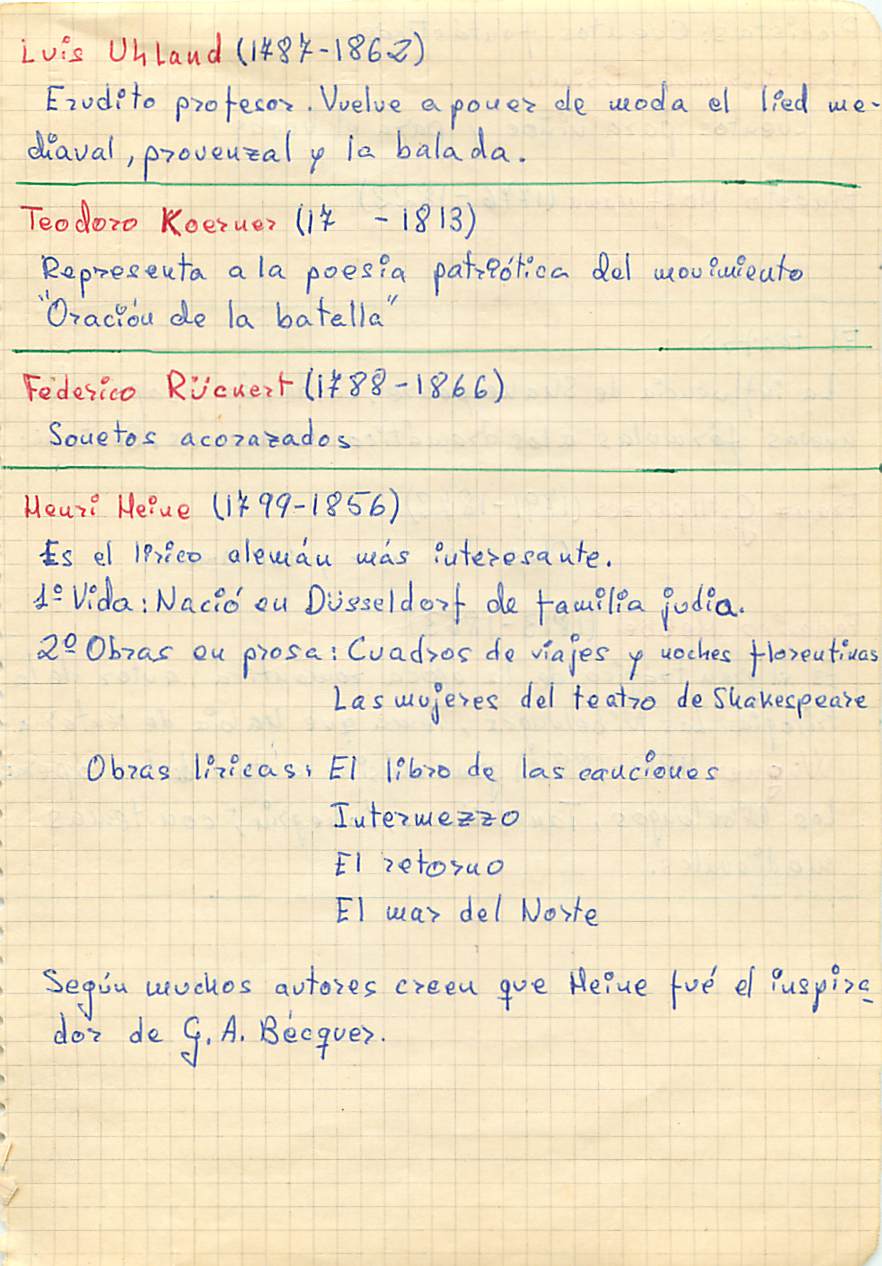 Luis Uhland (1787-1862)
Erudito profesor. Vuelve a poner de moda el lied me-
diaval, provenzal y la balada.
Teodoro Koerner (17 - 1813)
Representa a la poesía patriótica del movimiento
"Oración de la batella"
Féderico Rückert (1788-1866)
Sonetos acorazados
Henri Heine (1799-1856)
Es el lírico alemán más interesante.
1º Vida: Nació en Düsseldorf de familia judia.
2º Obras en prosa: Cuadros de viajes y noches florentinas
Las mujeres del teatro de Shakespeare
Obras líricas: El libro de las canciones
Intermezzo
El retorno
El mar del Norte
Según muchos autores creen que Heine fué el inspira
dor de G. A. Bécquer.